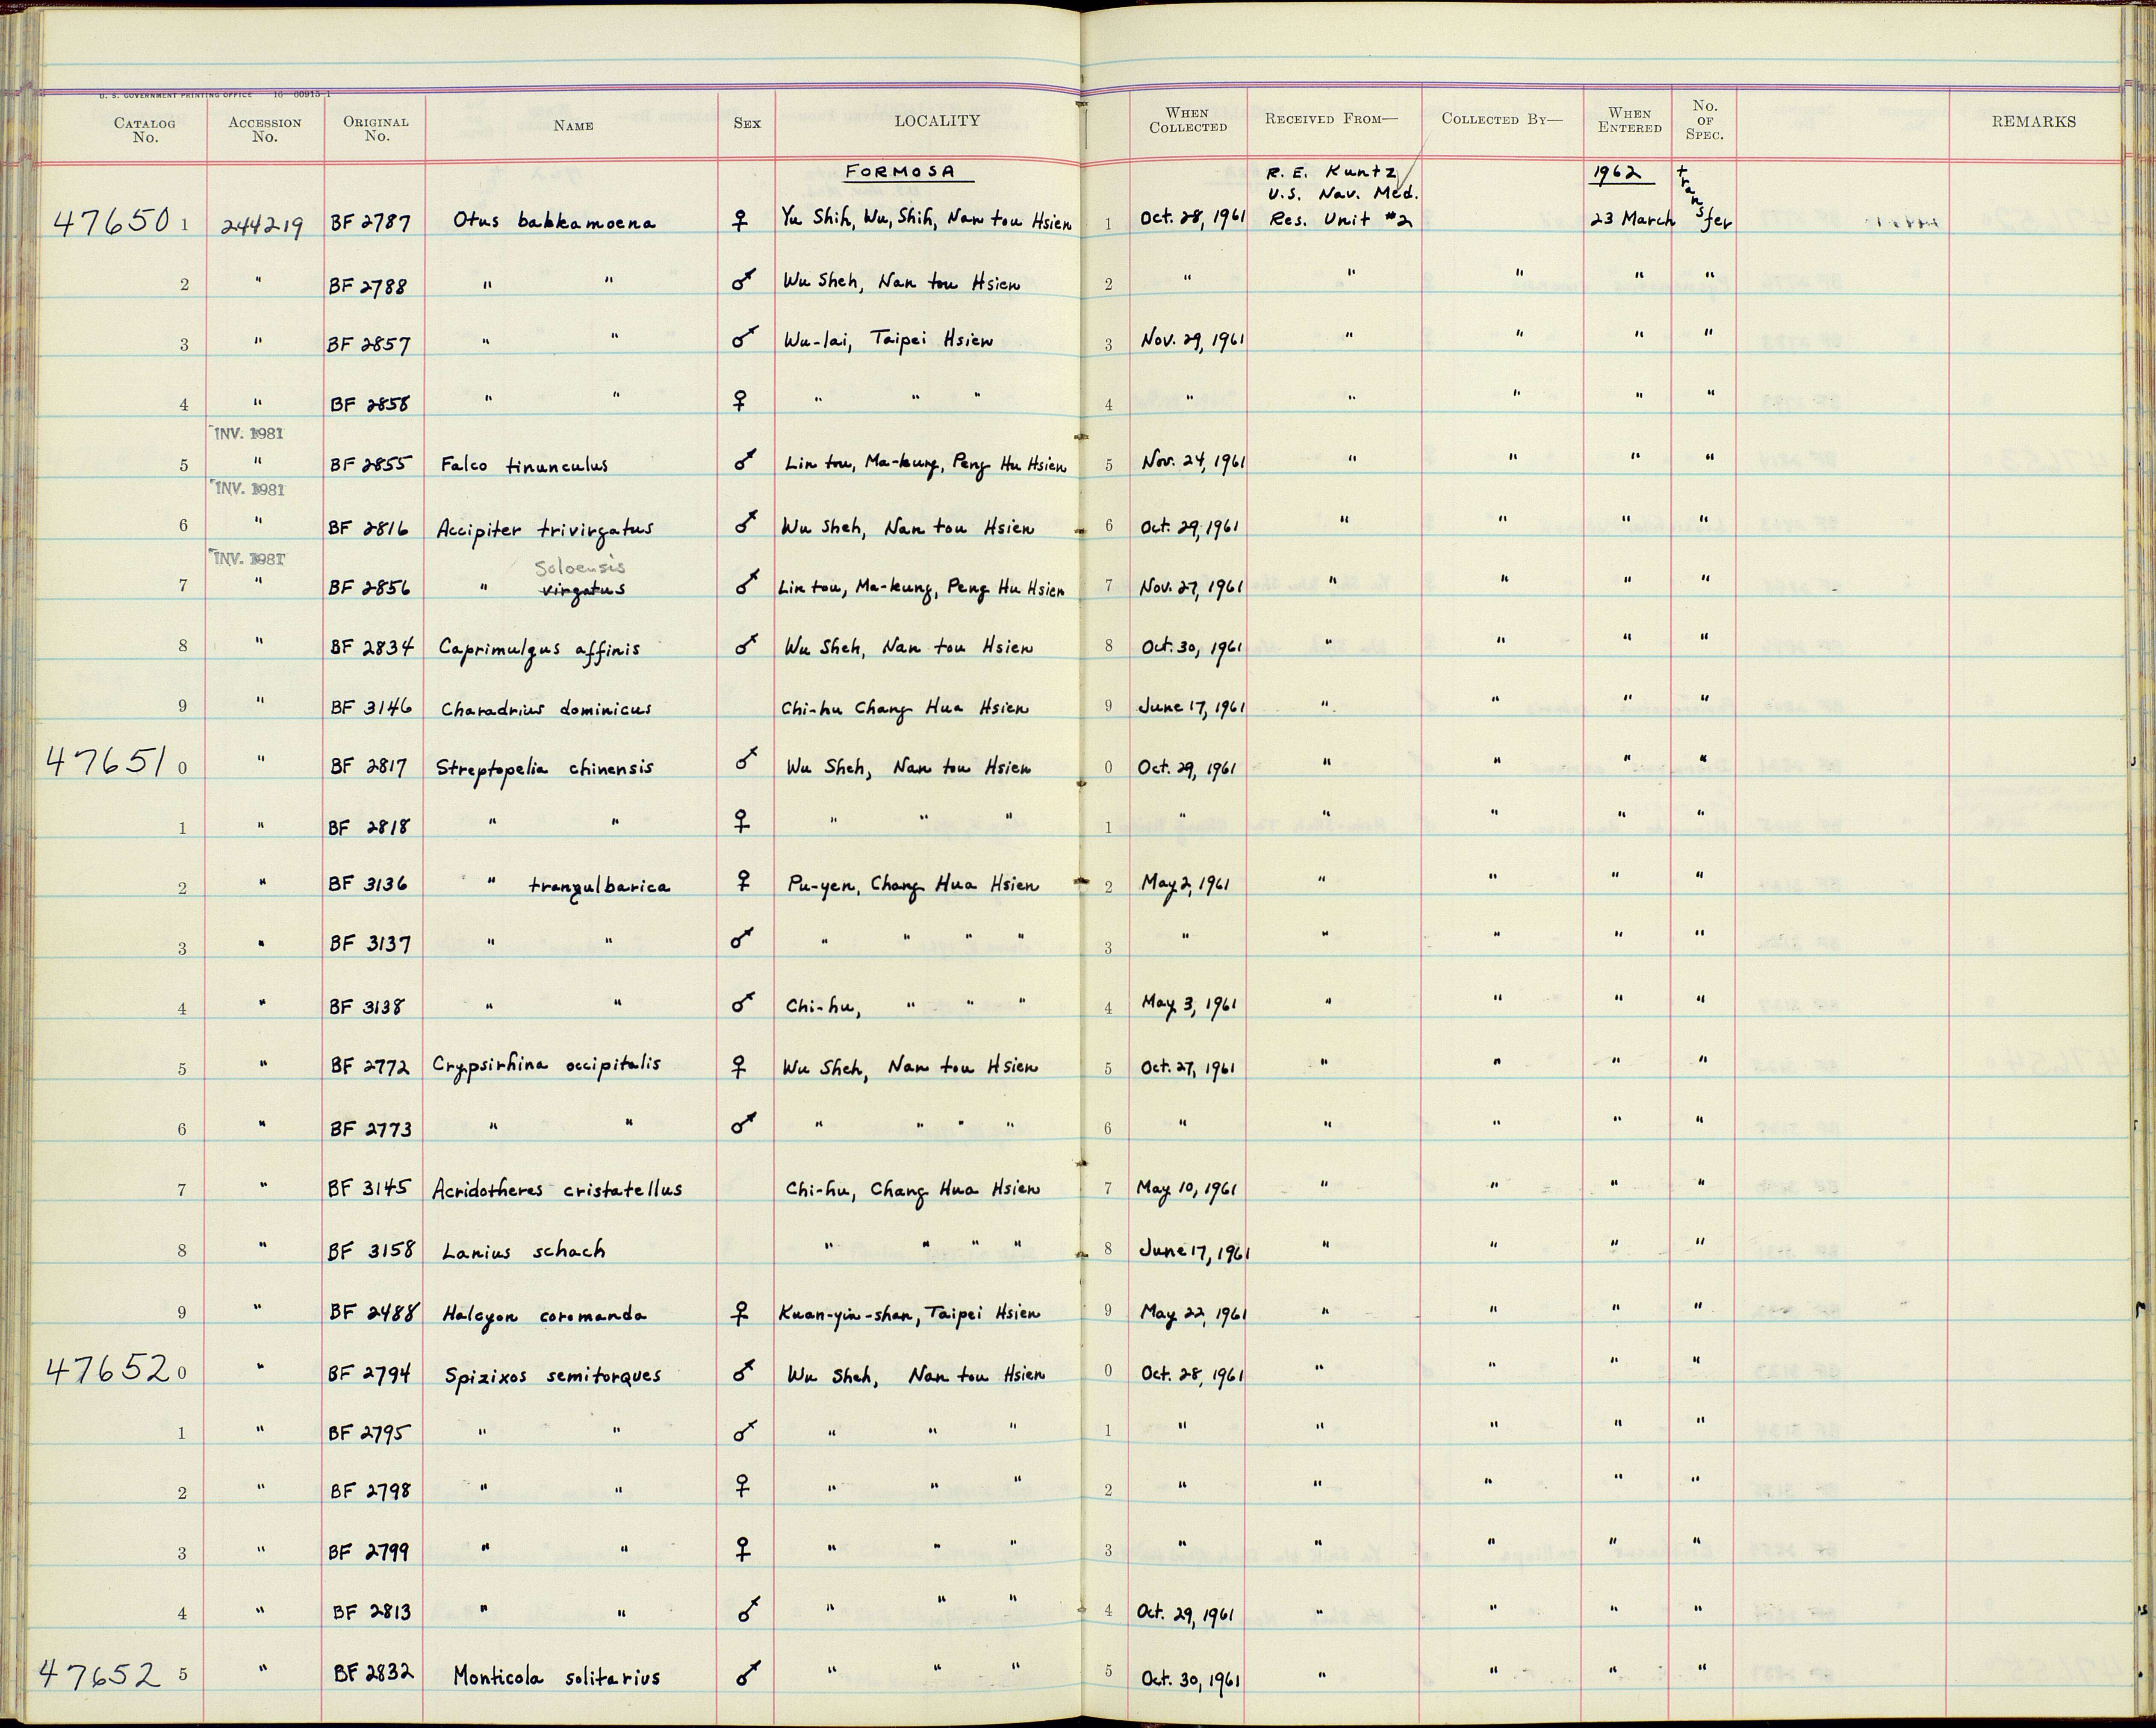 U. S. GOVERNMENT PRINTING OFFICE 16—00915-1
CATALOG No. ACCESSION No. ORIGINAL No. NAME SEX LOCALITY WHEN COLLECTED RECEIVED FROM— COLLECTED BY— WHEN ENTERED No. OF SPEC. REMARKS
FORMOSA R. E. Kuntz 1962
U.S. Nav. Med.
47650 1 244219 BF 2787 Otus bakkamoena ♀ Yu Shih, Wu, Shih, Nan tou Hsien 1 Oct. 28, 1961 Res. Unit #2 23 March transfer
2 " BF 2788 " " ♂ Wu Sheh, Nan tou Hsien 2 " " " " "
3 " BF 2857 " " ♂ Wu-lai, Taipei Hsien 3 Nov. 29, 1961 " " " "
4 " BF 2858 " " ♀ " " " 4 " " " " "
INV. 1981
5 " BF 2855 Falco tinunculus ♂ Lin tou, Ma-kung, Peng Hu Hsien 5 Nov. 24, 1961 " " " "
INV. 1981
6 " BF 2816 Accipiter trivirgatus ♂ Wu Sheh, Nan tou Hsien 6 Oct. 29, 1961 " " " "
INV. 1981 Soloensis
7 " BF 2856 " virgatus ♂ Lin tou, Ma-kung, Peng Hu Hsien 7 Nov. 27, 1961 " " " "
8 " BF 2834 Caprimulgus affinis ♂ Wu Sheh, Nan tou Hsien 8 Oct. 30, 1961 " " " "
9 " BF 3146 Charadrius dominicus Chi-hu Chang Hua Hsien 9 June 17, 1961 " " " "
47651 0 " BF 2817 Streptopelia chinensis ♂ Wu Sheh, Nan tou Hsien 0 Oct. 29, 1961 " " " "
1 " BF 2818 " " ♀ " " " 1 " " " " "
2 " BF 3136 " tranqulbarica ♀ Pu-yen, Chang Hua Hsien 2 May 2, 1961 " " " "
3 " BF 3137 " " ♂ " " " " 3 " " " " "
4 " BF 3138 " " ♂ Chi-hu, " " " 4 May 3, 1961 " " " "
5 " BF 2772 Crypsirhina occipitalis ♀ Wu Sheh, Nan tou Hsien 5 Oct. 27, 1961 " " " "
6 " BF 2773 " " ♂ " " " " 6 " " " " "
7 " BF 3145 Acridotheres cristatellus Chi-hu, Chang Hua Hsien 7 May 10, 1961 " " " "
8 " BF 3158 Lanius schach " " " " 8 June 17, 1961 " " " "
9 " BF 2488 Halcyon coromanda ♀ Kuan-yin-shan, Taipei Hsien 9 May 22, 1961 " " " "
47652 0 " BF 2794 Spizixos semitorques ♂ Wu Sheh, Nan tou Hsien 0 Oct. 28, 1961 " " " "
1 " BF 2795 " " ♂ " " " 1 " " " " "
2 " BF 2798 " " ♀ " " " 2 " " " " "
3 " BF 2799 " " ♀ " " " 3 " " " " "
4 " BF 2813 " " ♂ " " " 4 Oct. 29, 1961 " " " "
47652 5 " BF 2832 Monticola solitarius ♂ " " " 5 Oct. 30, 1961 " " " "